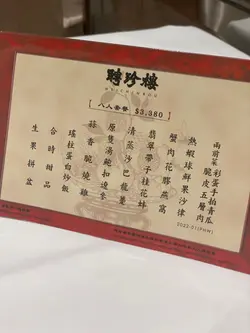 聘珍樓
HEICHINROU
八人套餐 $3,380
兩前菜 彩蛋手拍青瓜
脆皮五層肉
熱蝦球鮮果沙律
蟹肉花膠燕窩
翡翠帶子桂花蚌
清蒸沙巴龍躉
原隻湯鮑扣遼參
蒜香脆燒雞
瑤柱蛋白炒飯
合時甜品
生果拼盆